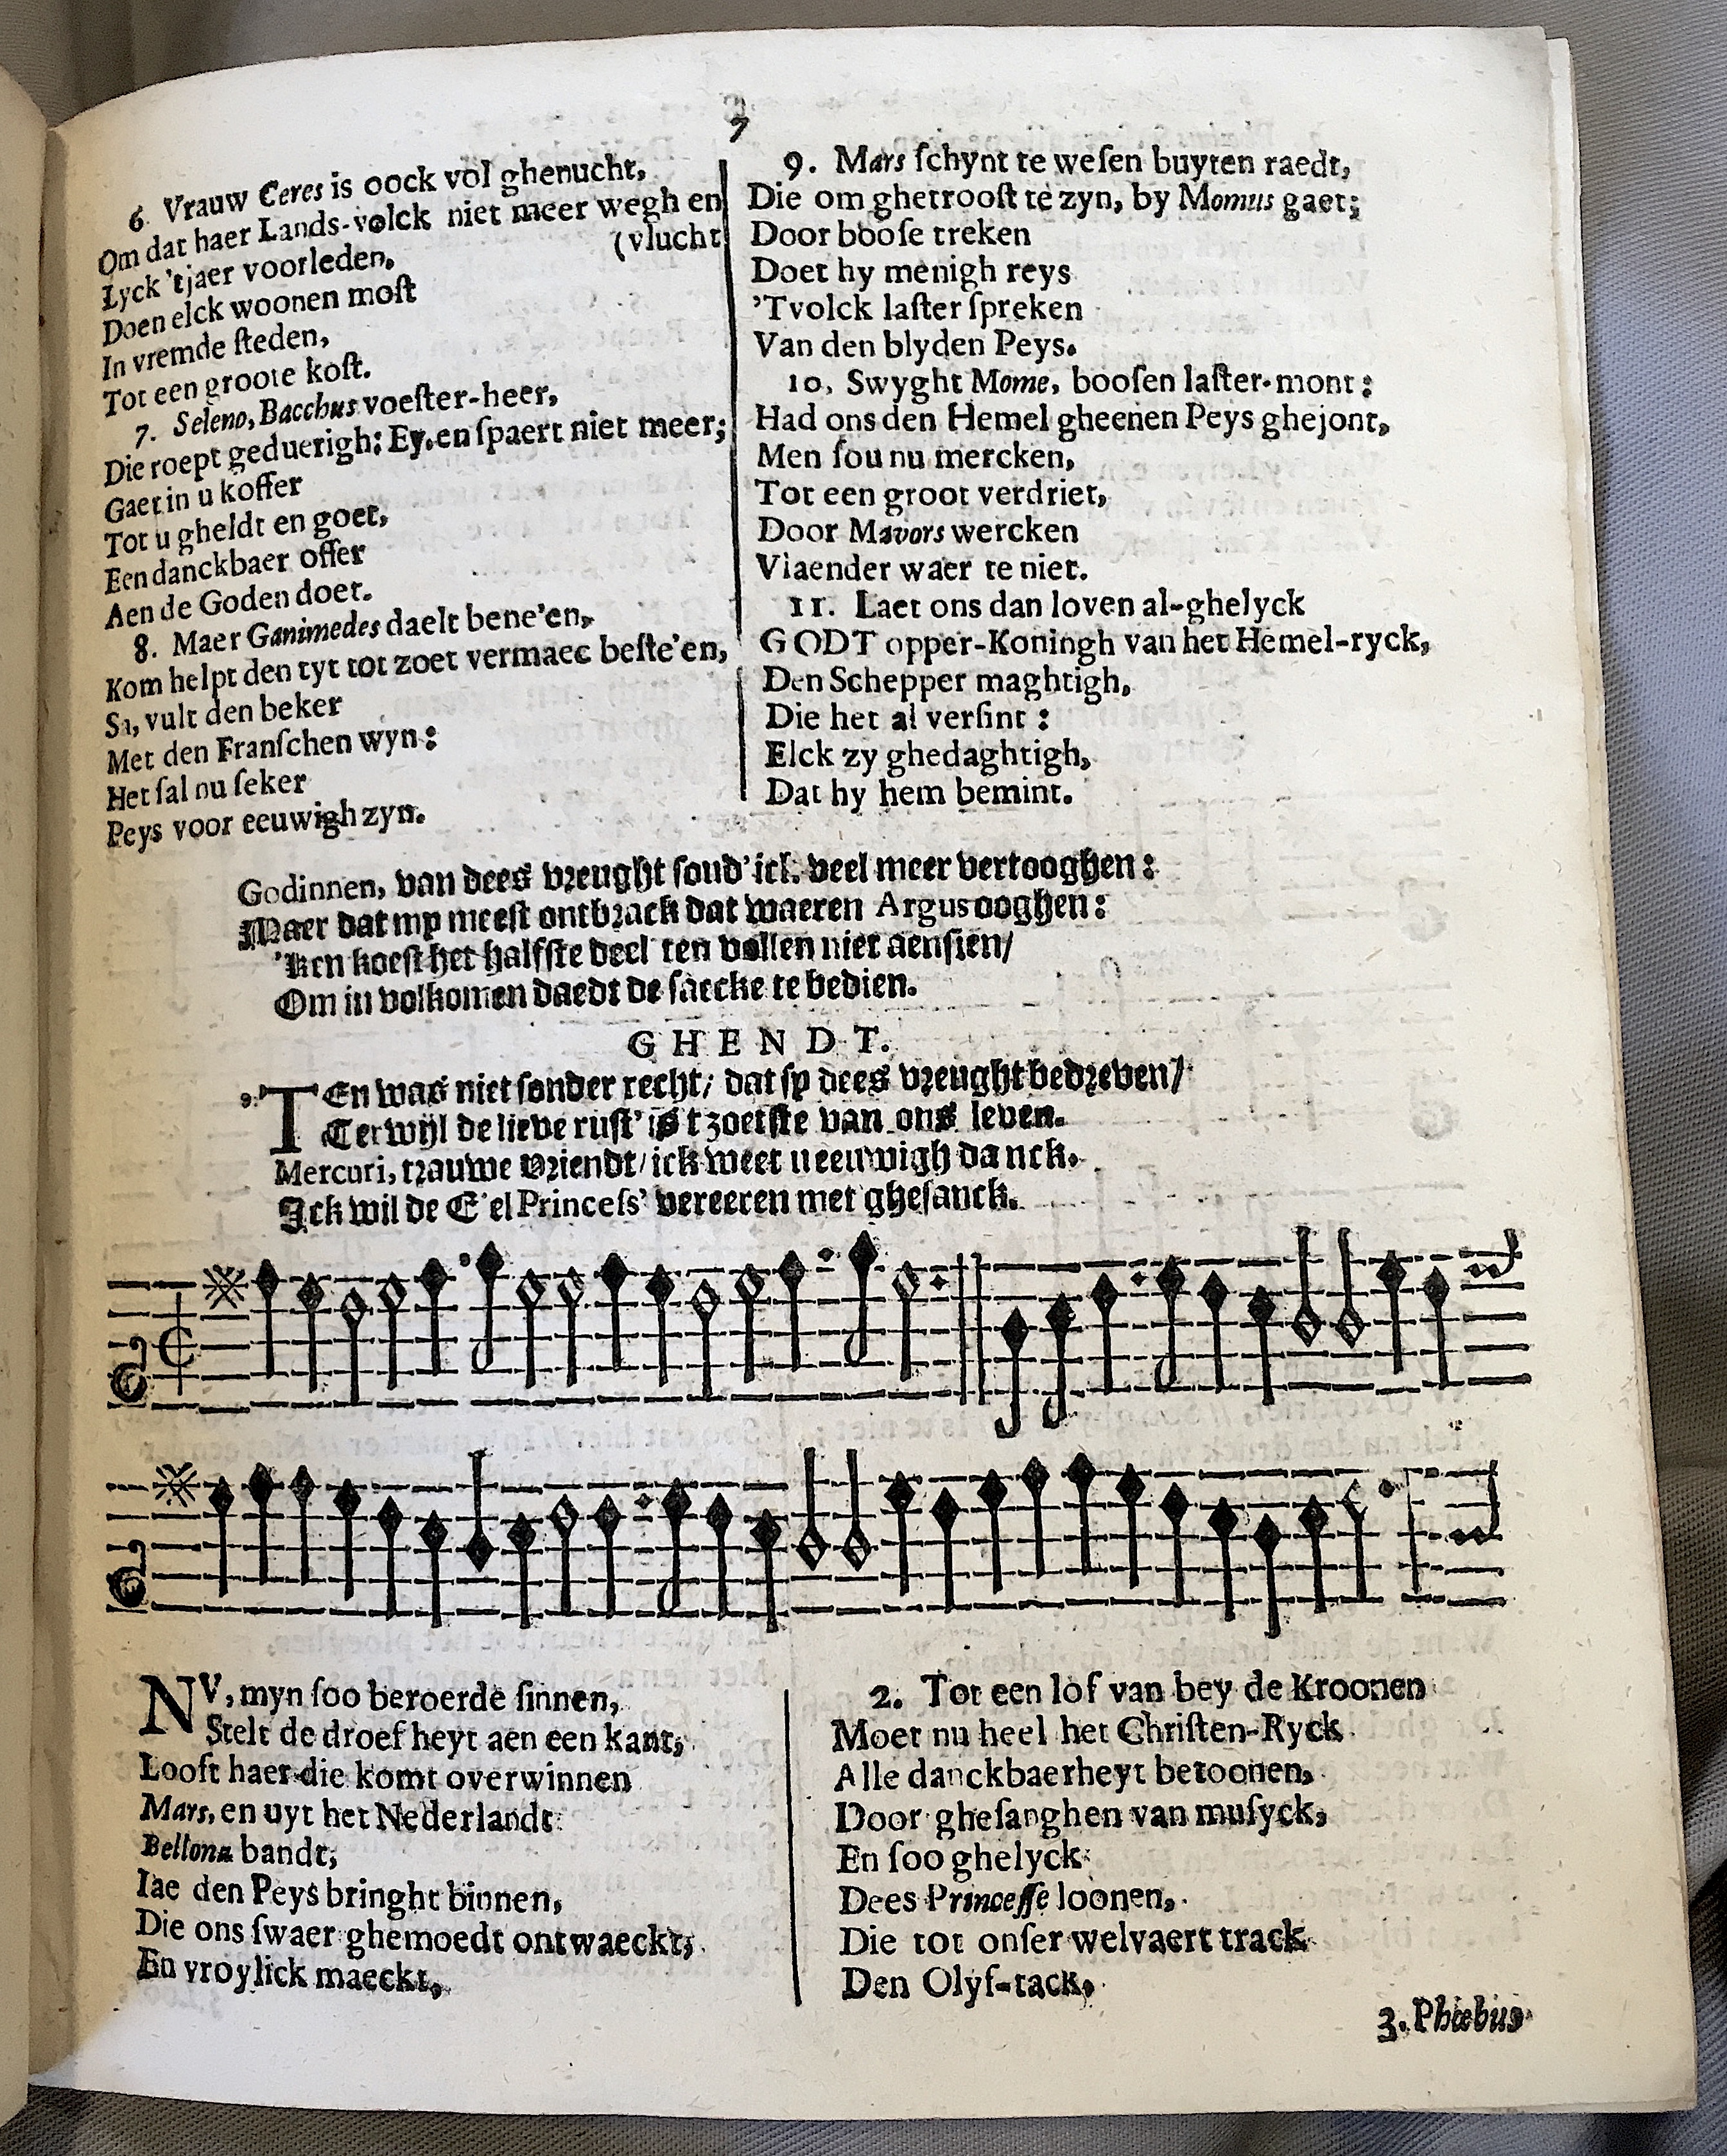 7
6. Vrauw Ceres is oock vol ghenucht,
Om dat haer Lands-volck niet meer wegh en
(vlucht
Lyck 'tjaer voorleden,
Doen elck woonen moſt
In vremde ſteden,
Tot een groote koſt.
7. Seleno, Bacchus voeſter-heer,
Die roept geduerigh: Ey, en ſpaert niet meer;
Gaet in u koffer
Tot u gheldt en goet,
Een danckbaer offer
Aen de Goden doet.
8. Maer Ganimedes daelt bene'en,
Kom helpt den tyt tot zoet vermaec beſte'en,
Sa, vult den beker
Met den Franſchen wyn:
Het ſal nu ſeker
Peys voor eeuwigh zyn.
9. Mars ſchynt te weſen buyten raedt,
Die om ghetrooſt te zyn, by Momus gaet;
Door booſe treken
Doet hy menigh reys
'Tvolck laſter ſpreken
Van den blyden Peys.
10. Swyght Mome, booſen laſter-mont:
Had ons den Hemel gheenen Peys ghejont,
Men ſou nu mercken,
Tot een groot verdriet,
Door Mavors wercken
Vlaender waer te niet.
11. Laet ons dan loven al-ghelyck
GODT opper-Koningh van het Hemel-ryck,
Den Schepper maghtigh,
Die het al verſint:
Elck zy ghedaghtigh,
Dat hy hem bemint.
Godinnen, van dees vreught ſoud'ick veel meer vertooghen:
Maer dat my meeſt ontbrack dat waeren Argus ooghen:
'Ken koeſt het halfſte deel ten vollen niet aenſien/
Om in volkomen daedt de ſaecke te bedien.
GHENDT.
'TEn was niet ſonder recht/ dat ſy dees vreught bedreven/
Terwijl de lieve ruſt' is t zoetſte van ons leven.
Mercuri, trauwe vriendt/ ick weet u eeuwigh danck.
Ick wil de E'el Princeſs' vereeren met gheſanck.
NV, myn ſoo beroerde ſinnen,
Stelt de droef heyt aen een kant;
Looft haer die komt overwinnen
Mars, en uyt het Nederlandt
Bellona bandt;
Iae den Peys bringht binnen,
Die ons ſwaer ghemoedt ontwaeckt,
En vroylick maeckt,
2. Tot een lof van bey de Kroonen
Moet nu heel het Chriſten-Ryck
Alle danckbaerheyt betoonen,
Door gheſanghen van muſyck,
En ſoo ghelyck
Dees Princeſſe loonen,
Die tot onſer welvaert track
Den Olyf-tack,
3. Phœbus